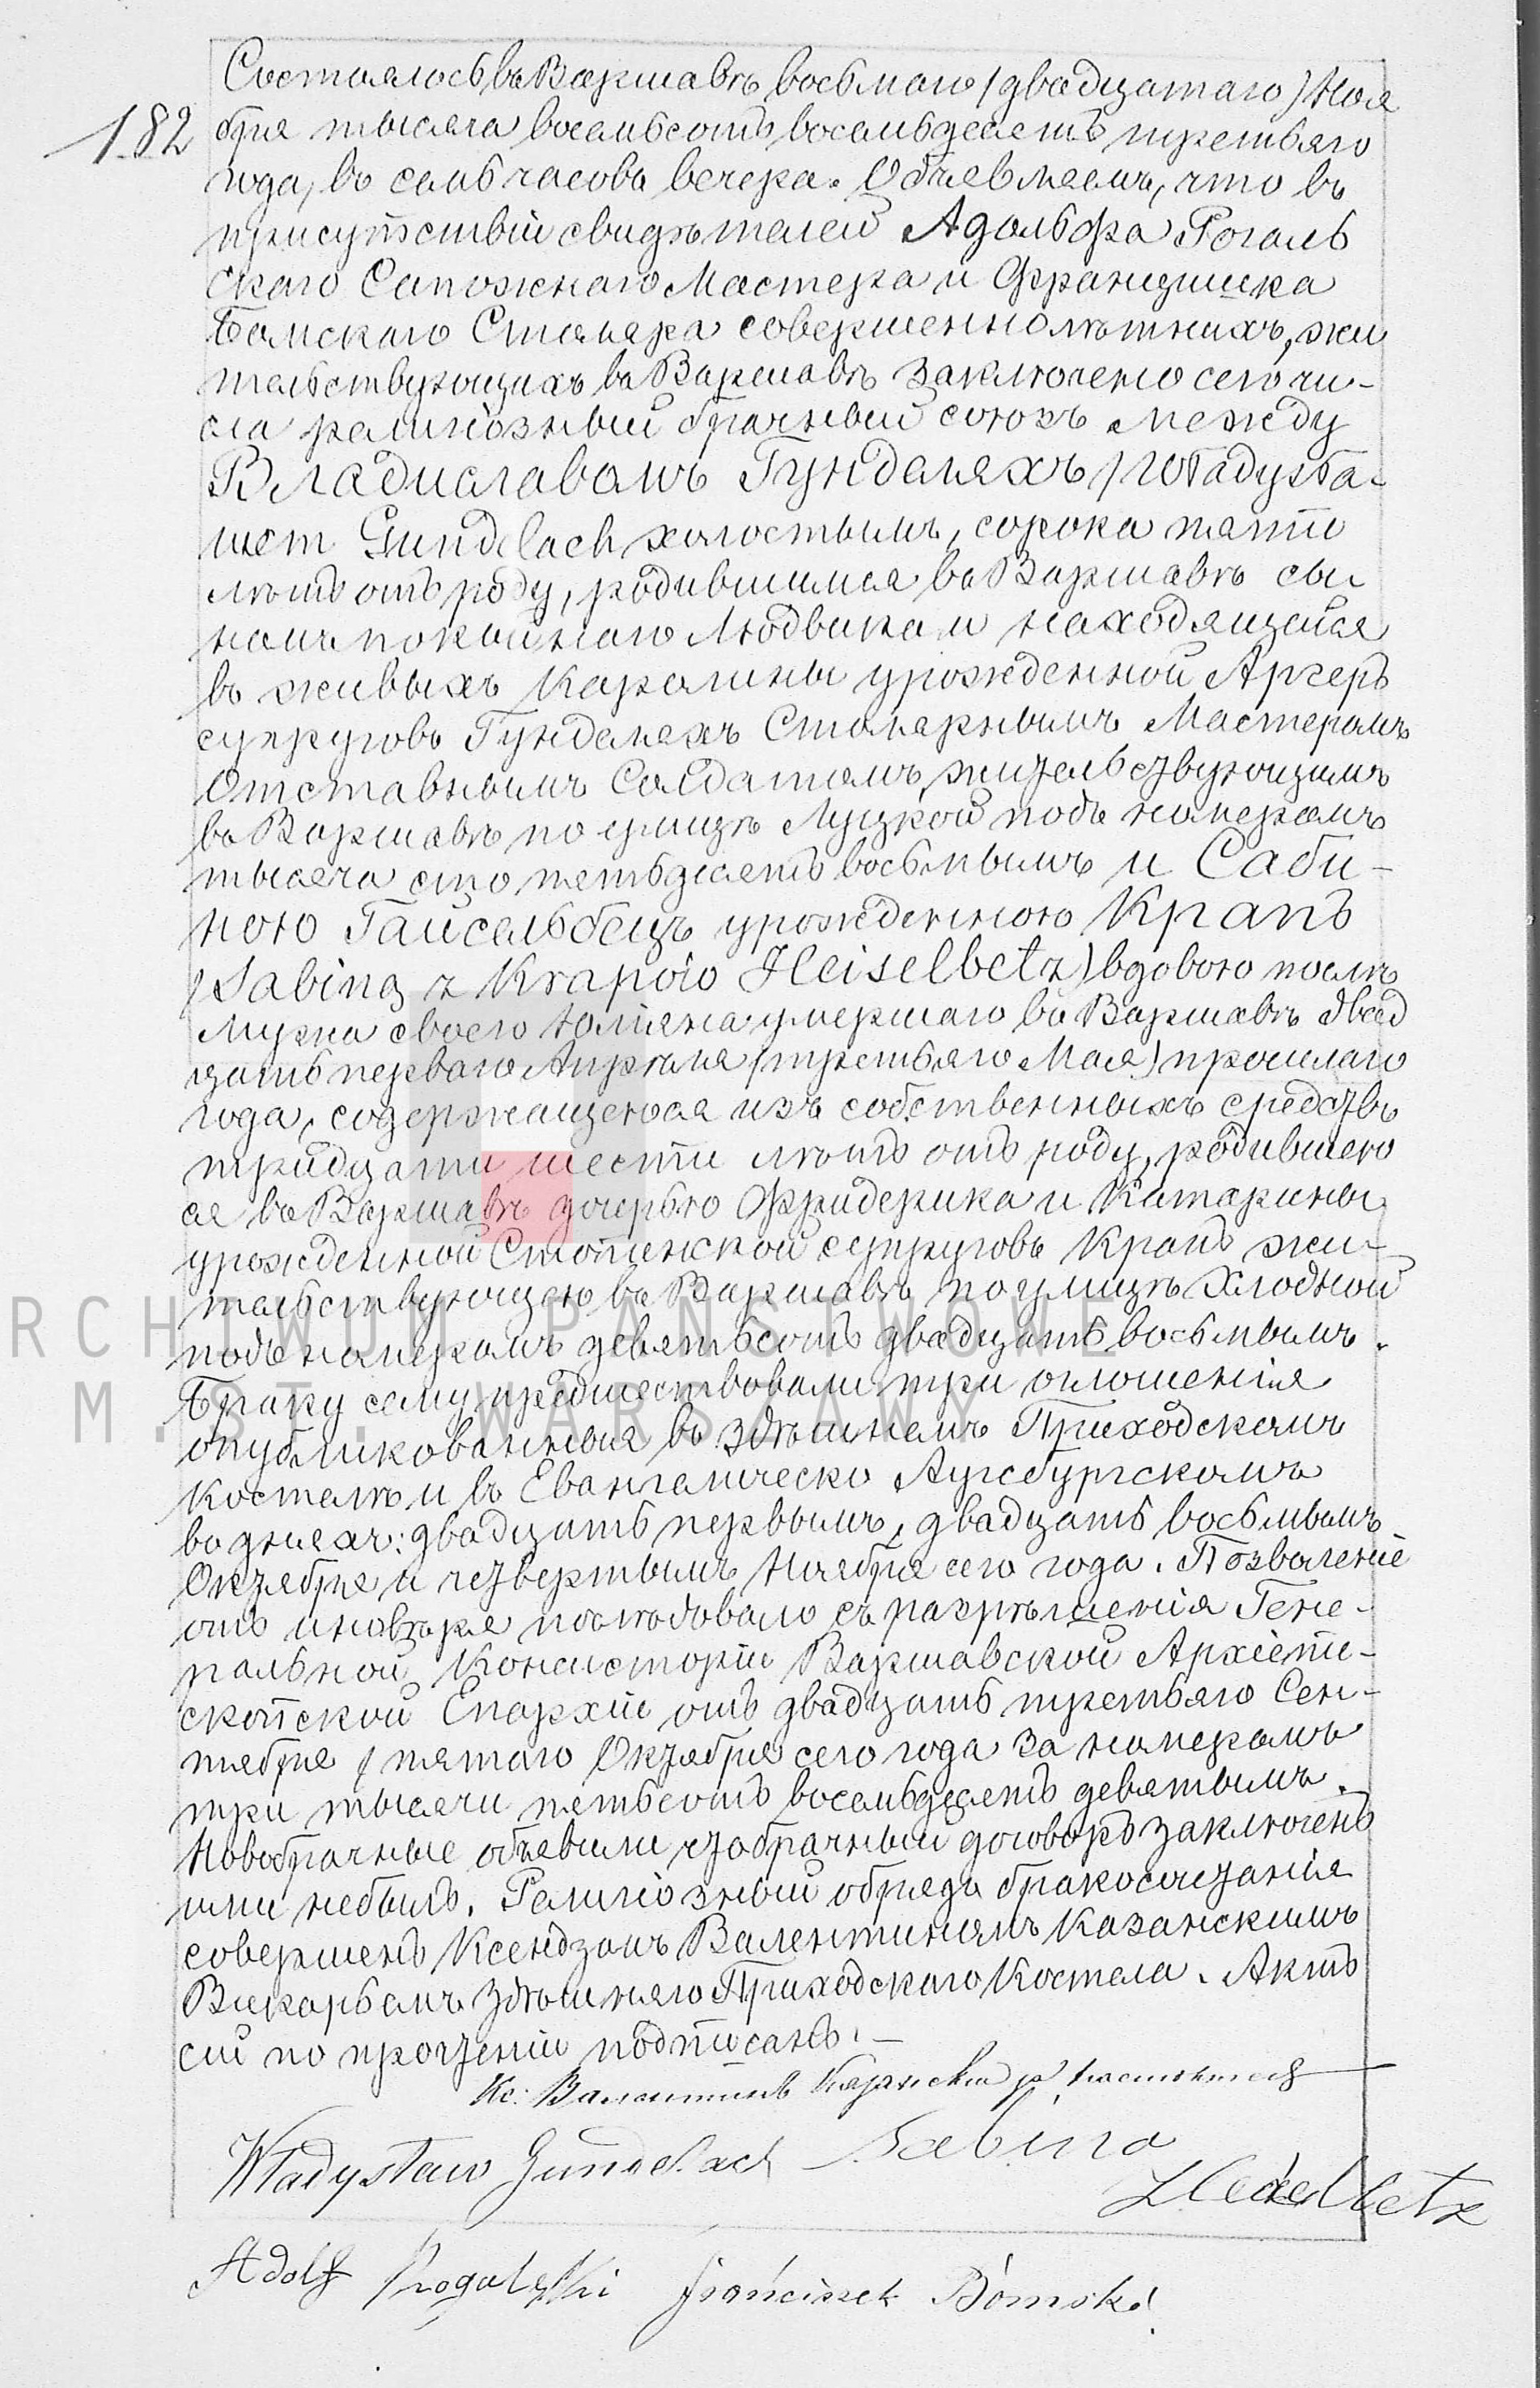 182
Состоялось въ Варшавѣ восьмаго (двадцатаго) Ноя
бря тысяча восемьсотъ восемьдесятъ третьяго
года, въ семь часовъ вечера. Объявляемъ, что въ
присутствіи свидѣтелей Адольфа Рогаль
скаго Сапожнаго Мастера и Францишка
Бомскаго Столяра совершеннолѣтнихъ, жи
тельствующихъ въ Варшавѣ заключено сего чи-
сла религіозный брачный союзъ между
Владиславомъ Гунделяхъ /
Gundelach холостымъ, сорока пяти
лѣтъ отъ роду, родившимся въ Варшавѣ сы
номъ покойнаго Людвика и находящейся
въ живыхъ Каролины урожденной Аргеръ
супруговъ Гунделяхъ Столярнымъ Мастеромъ
Отставнымъ Солдатомъ, жительствующимъ
въ Варшавѣ по улицѣ Луцкой подъ номеромъ
тысяча сто пятьдесятъ восьмымъ и Саби-
ною Гайсельбецъ урожденною Крапъ
(Sabiną z Krapów Heiselbetz) вдовою послѣ
мужа своего Юліяна умершаго въ Варшавѣ двад
цать перваго Апрѣля (третьяго Мая) прошлаго
года, содержащеюся изъ собственныхъ средствъ
тридцати шести лѣтъ отъ роду, родившею
ся въ Варшавѣ дочерью Фридерика и Катарины
урожденной супруговъ Крапъ жи-
тельствующею въ Варшавѣ по улицѣ Хлодной
подъ номеромъ девятьсотъ двадцать восьмымъ.
Браку сему предшествовали три оглошенія
опубликованныя въ здѣшнемъ Приходскомъ
Костелѣ и въ Евангелическо Аугсбургскомъ
во дняхъ: двадцать первымъ, двадцать восьмымъ
Октября и четвертымъ Ноября сего года. Позволеніе
отъ иновѣрія послѣдовало съ разрѣшенія Гене-
ральной Консисторіи Варшавской Архіепи-
скопской Епархіи отъ двадцать третьяго Сен-
тября / пятаго Октября сего года за номеромъ
три тысячи пятьсотъ восемьдесятъ девятымъ.
Новобрачные объявили чтобрачный договоръ заключенъ
ими небылъ. Религіозный обрядъ бракосочетанія
совершенъ Ксендзомъ Валентиномъ Казанскимъ
Викарьемъ здѣшняго Приходскаго Костела. Актъ
сій по прочтеніи подписанъ. —
Кс: Валентинъ Казанскій
Władysław Gundelach Sabina
Heiselbetz
Adolf Rogalski Franciszek Bómski
ARCHIWUM PAŃSTWOWE
M.ST. WARSZAWY